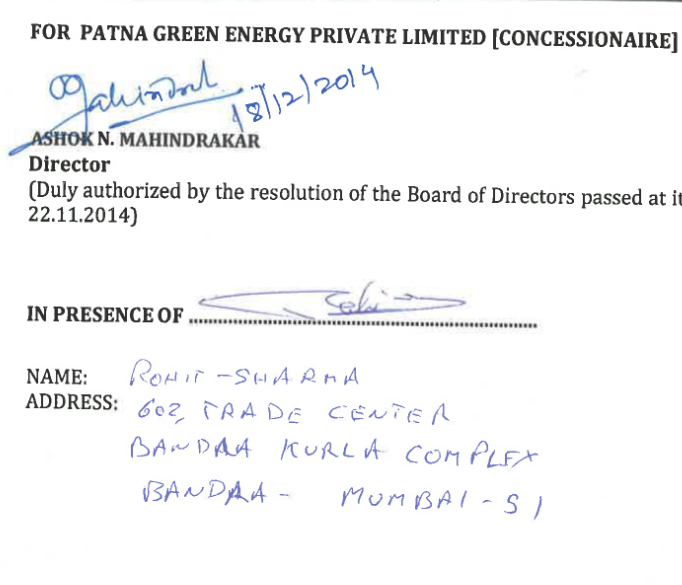 FOR PATNA GREEN ENERGY PRIVATE LIMITED [CONCESSIONAIRE]
18/12/2014
ASHOK N. MAHINDRAKAR
Director
(Duly authorized by the resolution of the Board of Directors passed at it
22.11.2014)
IN PRESENCE OF ..........................................................................
NAME: ROHIT - SHARMA
ADDRESS: 602, TRADE CENTER
BANDRA KURLA COMPLEX
BANDRA - MUMBAI - 51